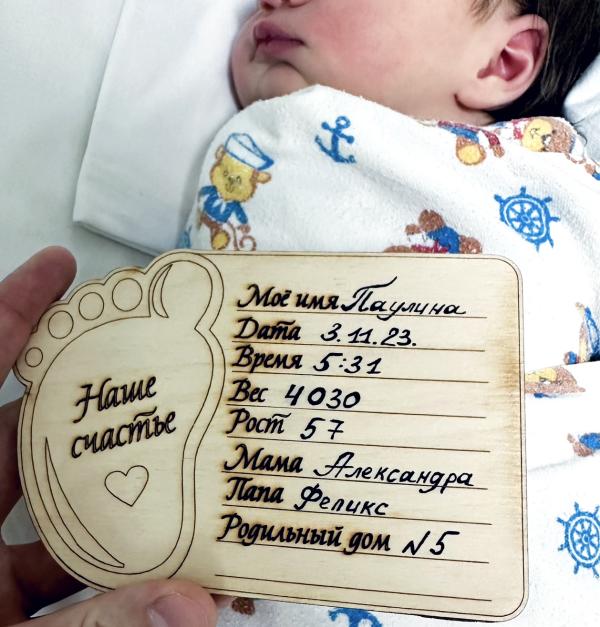 Наше
счастье
Моё имя Паулина
Дата 3.11.23.
Время 5:31
Вес 4030
Рост 57
Мама Александра
Папа Феликс
Родильный дом N5